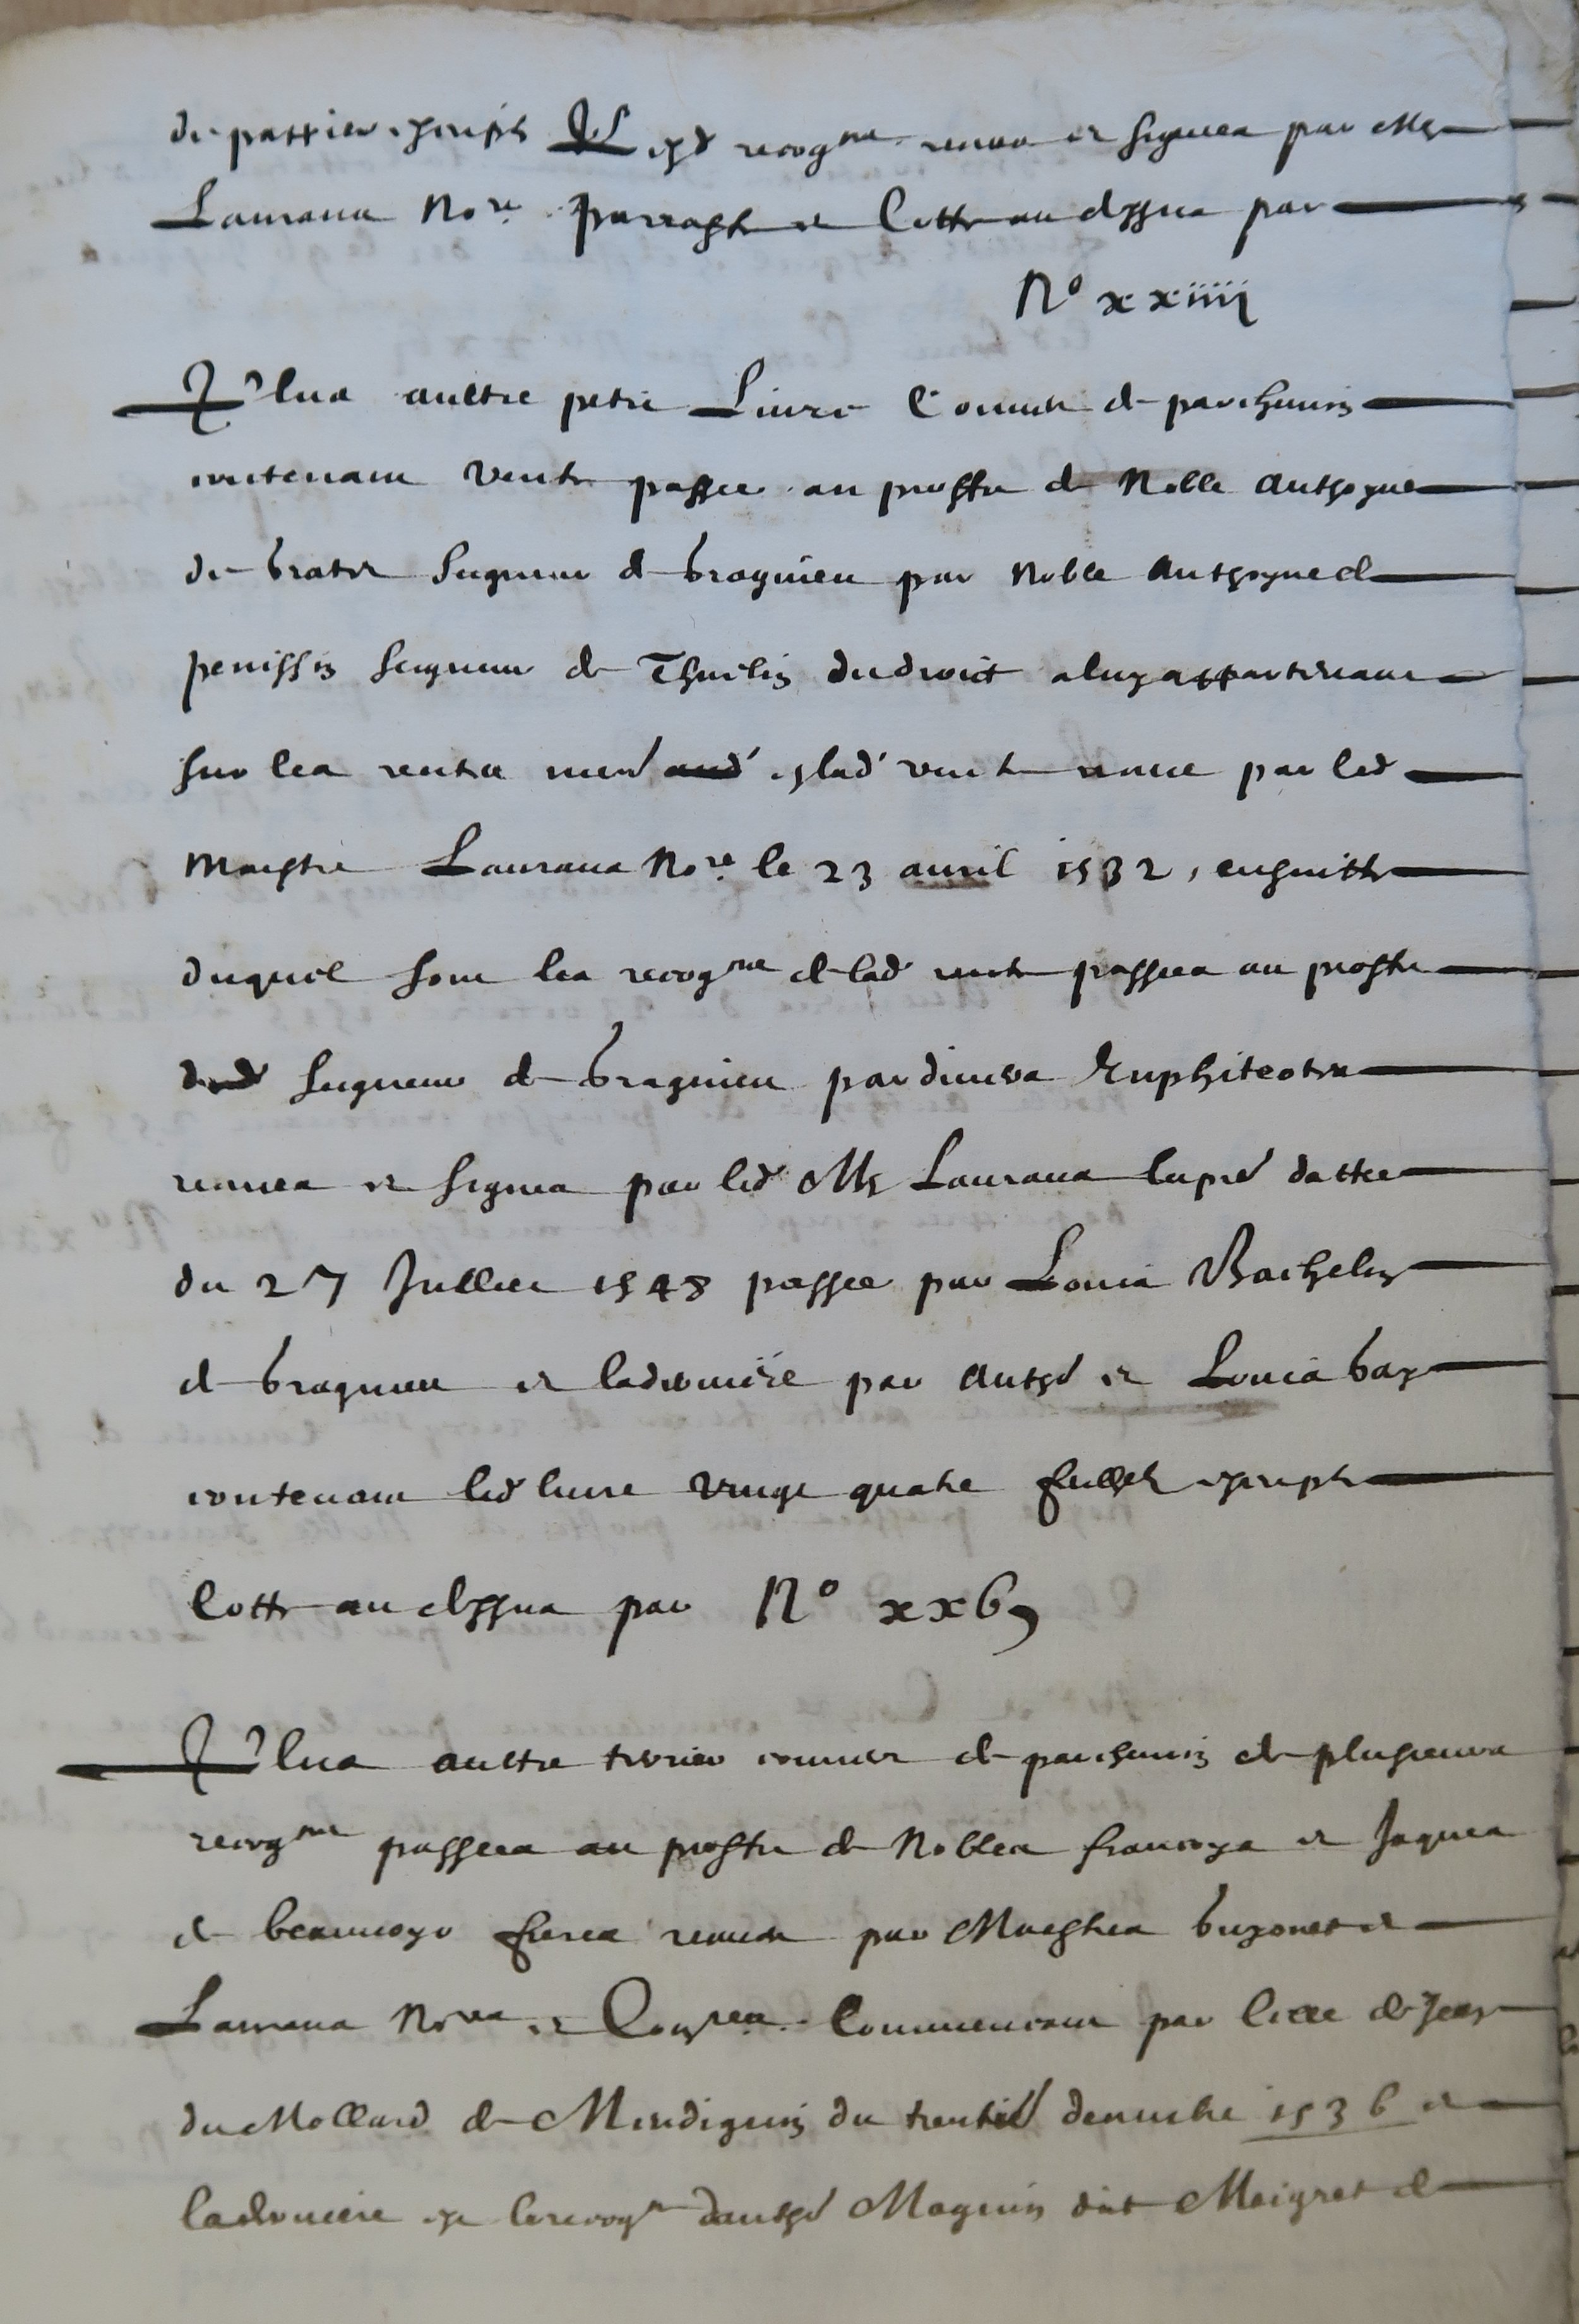 de pappier escripts lesd recogn^ces receues et signees par M^e
Laurans No^re parraphe et Cotte au dessus par
N° xxiiii
Plus aultre petit Livre Couvert de parchemin
contenant vente passee au proffit de Noble Anthoyne
de bratet Seigneur de bragnieu par Noble Anthoyne de
penissin Seigneur de Thuelin du droict a luy appartenant
sur les rentes lad vente receue par led
Maistre Laurans No^re le 23 avril 1532, ensuitte
duquel sont les recogn^ces de lad rente passees au proffit
dud Seigneur de bragnieu par divers Emphiteotes
receues et signees par led M^e Laurans la pre^e dattee
du 27 Juillet 1548 passee par Louis Bachelin
de bragnieu et la derniere par Anth^e et Louis bay
contenant led livre vingt quatre feullets escripts
Cotte au dessus par N° xxvj
Plus aultre terrier couvert de parchemin de plusieurs
recogn^ces passees au proffit de Nobles francoys et Jaques
de beauvoyr freres receues par Maistres buyonet et
Laurans No^res et Com^res Commencant par celle de Jean
du Mollard de du trenties^e decembre 1536 et
la derniere est la recog^ce d'anth^e Magnin dit Meigret de